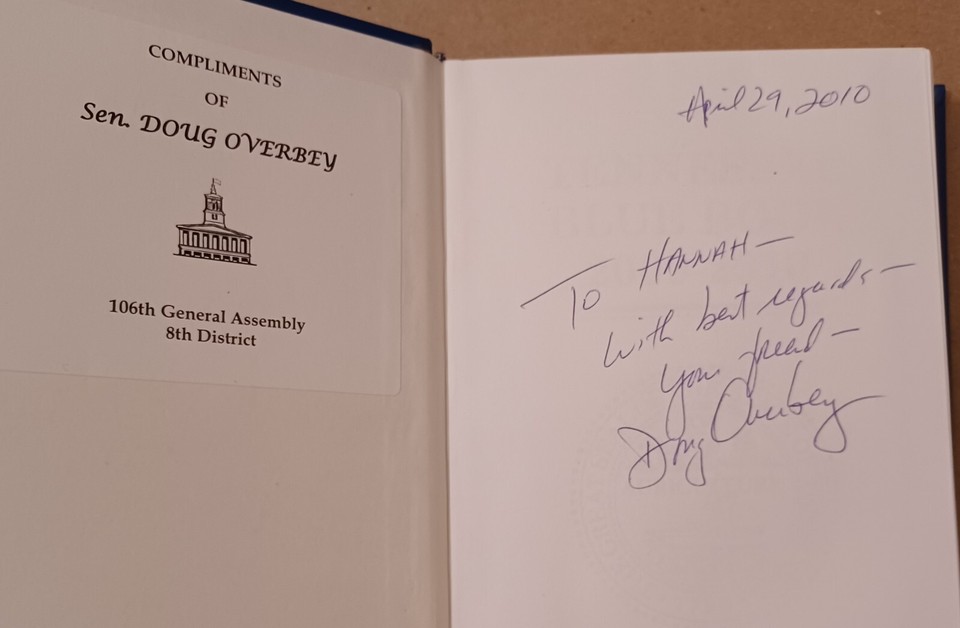 COMPLIMENTS
OF
Sen. DOUG OVERBEY
106th General Assembly
8th District
April 29, 2010
To HANNAH—
with best regards—
your friend—
Doug Overbey